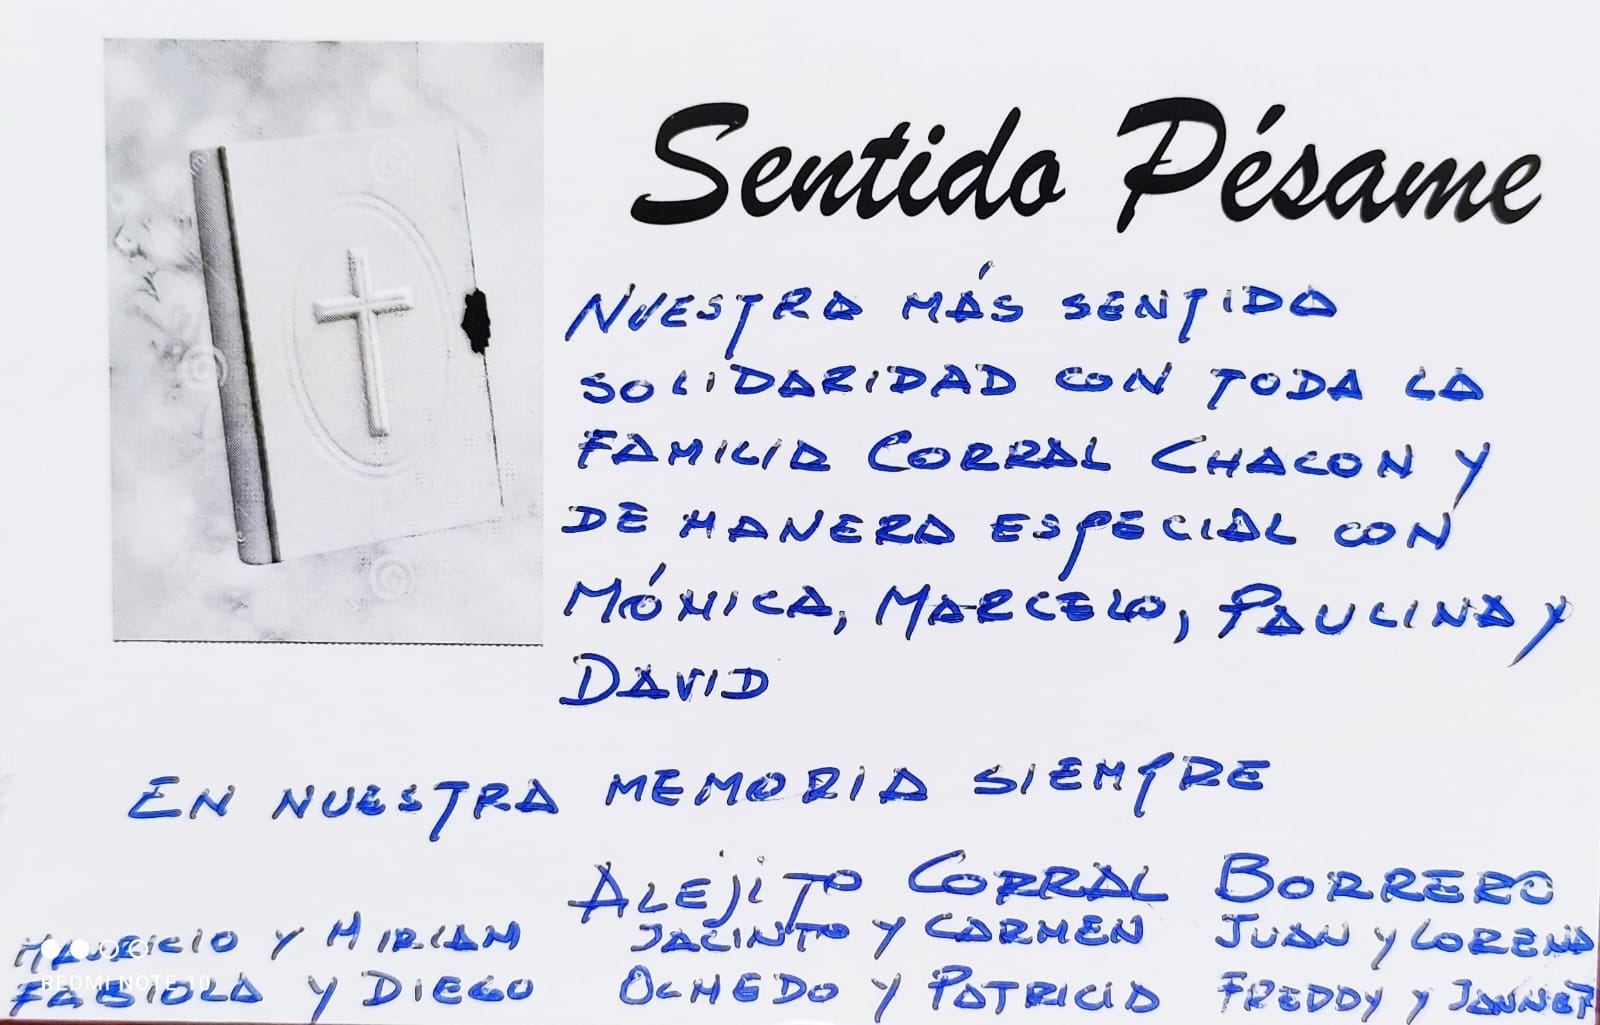 Sentido Pésame
NUESTRA MÁS SENTIDA
SOLIDARIDAD CON TODA LA
FAMILIA CORRAL CHACON Y
DE MANERA ESPECIAL CON
MÓNICA, MARCELO, PAULINA Y
DAVID
EN NUESTRA MEMORIA SIEMPRE
ALEJITO CORRAL BORRERO
MAURICIO Y MIRIAM JACINTO Y CARMEN JUAN Y LORENA
REDMI NOTE 10
FABIOLA Y DIEGO OLMEDO Y PATRICIA FREDDY Y JANNET